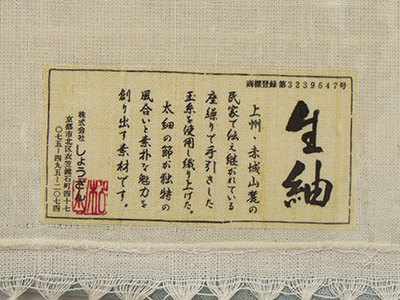 商標登録 第3239647号
生紬
上州・赤城山麓の
民家で伝え継がれている
座繰りで手引きした
玉糸を使用し織り上げた。
太細の節が独特の
風合いと素朴な魅力を
創り出す素材です。
株式会社 しょうざん
京都市北区衣笠鏡石町四十七
〇七五-四九五-二〇七四